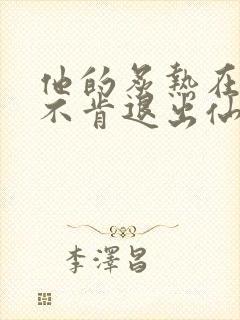 他的炙熱在
不肯退出仙
李澤昌